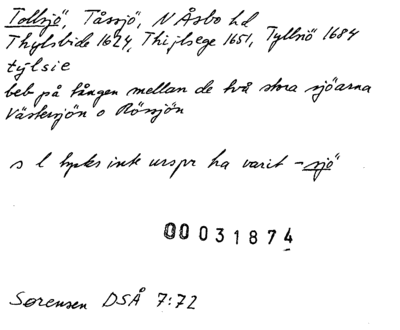 Tollsjö, Tåssjö, N Åsbo hd
Thylsbide 1624, Thijlsege 1651, Tyllsiö 1684
tÿlsie
beb på tången mellan de två stora sjöarna
Västersjön o Rössjön
s l tycks inte urspr ha varit -sjö
00031874
Sørensen DSÅ 7:72